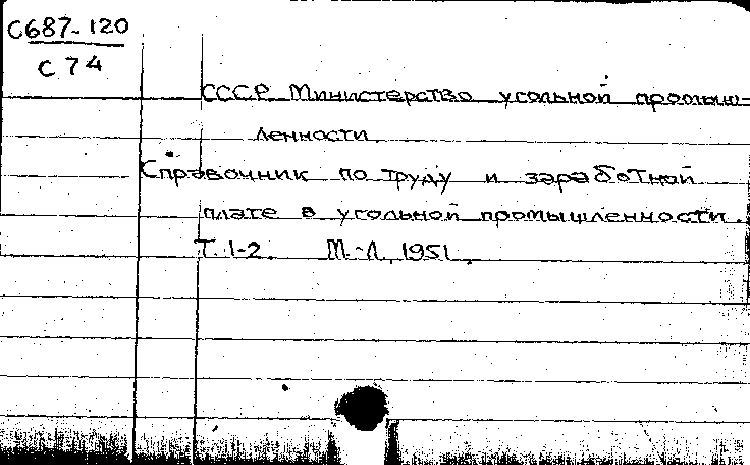 С687-120
С74
СССР Министерство угольной промыш-
ленности.
Справочник по труду и заработной
плате в угольной промышленности.
Т. 1-2. М.-Л., 1951.